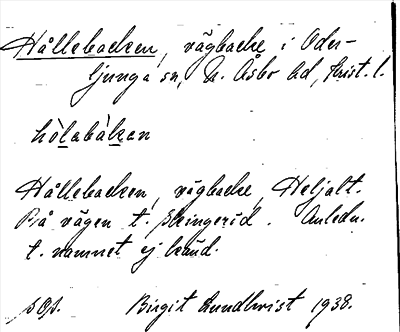 Hållebacken, vägbacke i Oder-
ljunga sn, N. Åsbo hd, Krist. l.
hòlabàkan
Hållebacken, vägbacke, Heljalt.
På vägen t. Skingerid. Anledn.
t. namnet ej känd.
sOp. Birgit Lundkvist 1938.